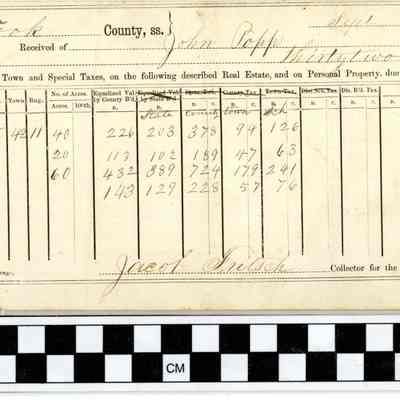 Cook County, ss. Sept
Received of John Popp
Thirtytwo
Town and Special Taxes, on the following described Real Estate, and on Personal Property, due
Town Rng. No. of Acres. Equalized Val. by County B'd. Equalized Val. by State B'd. State Tax. County Tax. Town Tax. Dis. Sch. Tax Dis. R'd. Tax
Acres. 100ths. D. D. D. C. D. C. D. C. D. C. D. C.
State County town Sch
42 11 40 226 203 378 94 126
20 113 102 189 47 63
60 432 389 724 179 241
143 129 228 57 76
Jacob Collector for the
CM